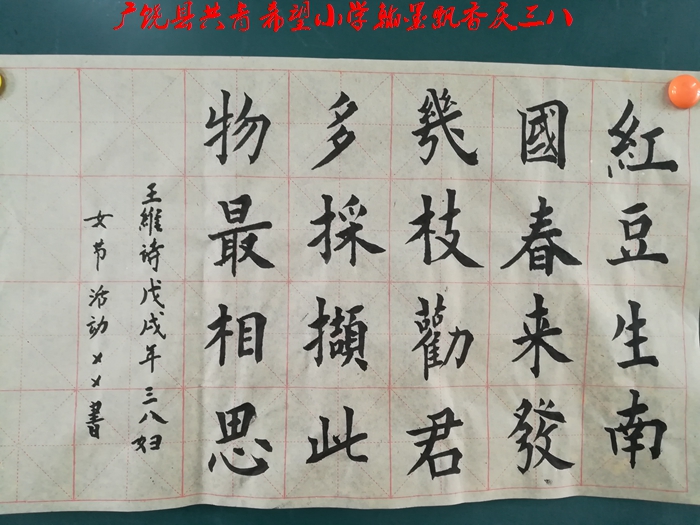 广饶县共青希望小学翰墨飘香庆三八
紅豆生南
國春来發
幾枝勸君
多採擷此
物最相思
王維诗戊戌年三八妇
女节活动××書